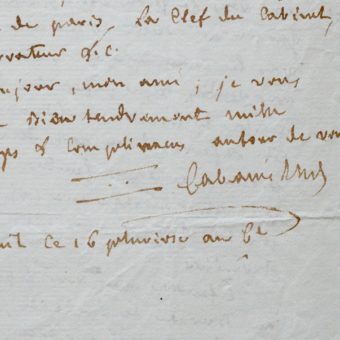 de paris, La Clef du Cabinet,
rvateur &c.
onjour, mon ami, je vous
bien tendrement mille
& complimens autour de vou
Cabanis
ce 16 pluviose an 6e